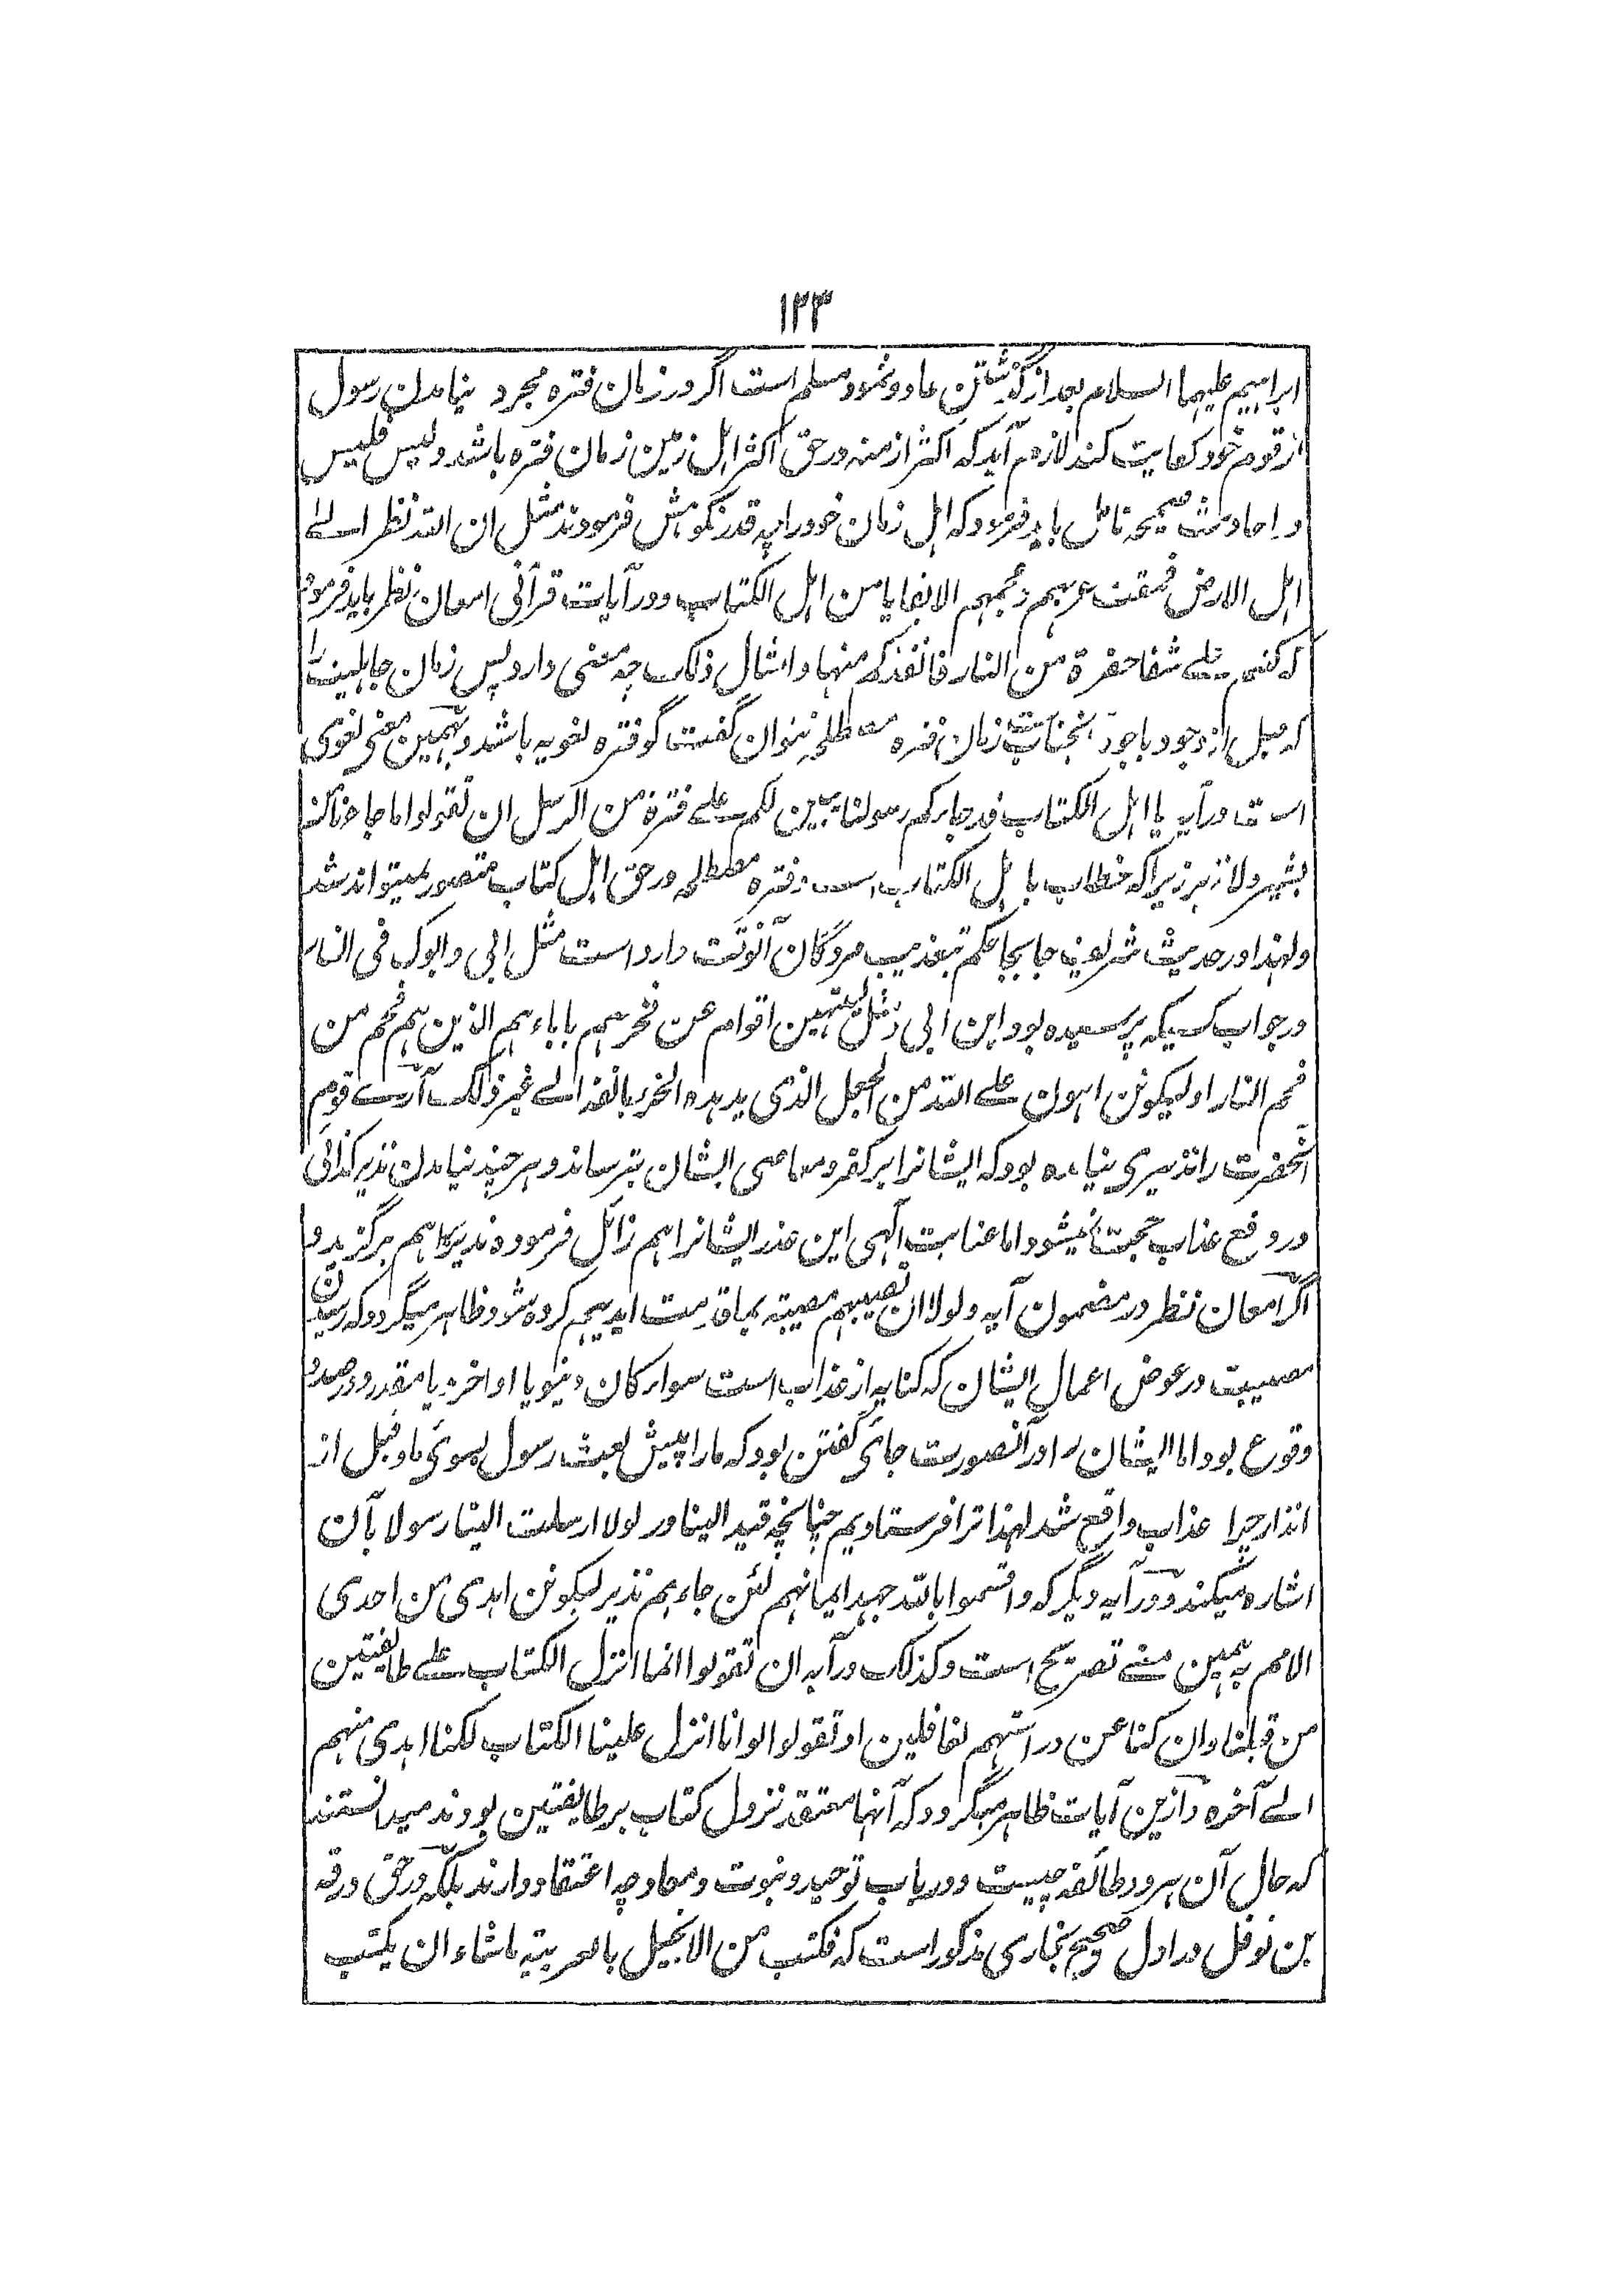 ۱۲۳
ابراهیم علیهما السلام بعد از گذشتن عاد و ثمود مسلم است اگر در زمان فتره مجرد نیامدن رسول
از قوم خود کفایت کند لازم آید که اکثر ازمنه در حق اکثر اهل زمین زمان فتره باشد و لیس فلیس
و احادیث صحیحه تامل باید فرمود که اهل زمان خود را چه قدر نکوهش فرمودند مثل ان الله نظر الے
اهل الارض فمقت عربهم و عجمهم الا بقایا من اهل الکتاب و در آیات قرآنی امعان نظر باید فرمود
که کنتم علے شفا حفرة من النار فانقذکم منها و امثال ذالک چه معنی دارد پس زمان جاهلیت را
که قبل از وجود باجود آنجناب است زمان فتره مصطلحه نتوان گفت گو فتره لغویه باشد و همین معنی لغوی
است در آیه یا اهل الکتاب قد جاءکم رسولنا یبین لکم علے فترة من الرسل ان تقولوا ما جاءنا من
بشیر و لا نذیر زیرا که خطاب با اهل الکتاب است و فتره مصطلحه در حق اهل کتاب متصور نمیتواند شد
و لهذا در حدیث شریف جابجا حکم تبعذیب مردگان آنوقت وارد است مثل ابی و ابوک فی النار
در جواب کسیکه پرسیده بود این ابی و مثل لینتهین اقوام عن فخرهم باباءهم الذین هم فحم من
فحم النار او لیکونن اهون علے الله من الجعل الذی یدهده الخرء بانفه الے غیر ذالک آرے قوم
آنحضرت را نذیری نیامده بود که ایشانرا بر کفر و معاصی ایشان بترساند و هر چند نیامدن نذیر کذائی
در رفع عذاب حجت نمیشود اما عنایت الهی این عذر ایشانرا هم زائل فرموده نذیر را هم برگزیده
اگر امعان نظر در مضمون آیه و لولا ان تصیبهم مصیبة بما قدمت ایدیهم کرده شود ظاهر میگردد که رسیدن
مصیبت در عوض اعمال ایشان که کنایه از عذاب است سواء کان دنیویا او اخرویا مقدر و در صدد
وقوع بود اما ایشان را در آنصورت جائی گفتن بود که ما را پیش بعثت رسول بسوئی ما و قبل از
انذار چرا عذاب واقع شد لهذا ترا فرستادیم چنانچه قید الینا در لولا ارسلت الینا رسولا بآن
اشاره میکند و در آیه دیگر که و اقسموا بالله جهد ایمانهم لئن جاءهم نذیر لیکونن اهدی من احدی
الامم بهمین معنے تصریح است و کذلک در آیه ان تقولوا انما انزل الکتاب علے طائفتین
من قبلنا و ان کنا عن دراستهم لغافلین او تقولوا لو انا انزل علینا الکتاب لکنا اهدی منهم
الے آخره و ازین آیات ظاهر میگردد که آنها معتقد نزول کتاب بر طایفتین بودند میدانستند
که حال آن هر دو طائفه چیست و در باب توحید و نبوت و معاد چه اعتقاد دارند بلکه در حق ورقه
بن نوفل در اول صحیح بخاری مذکور است که فکتب من الانجیل بالعربیته ماشاء ان یکتب